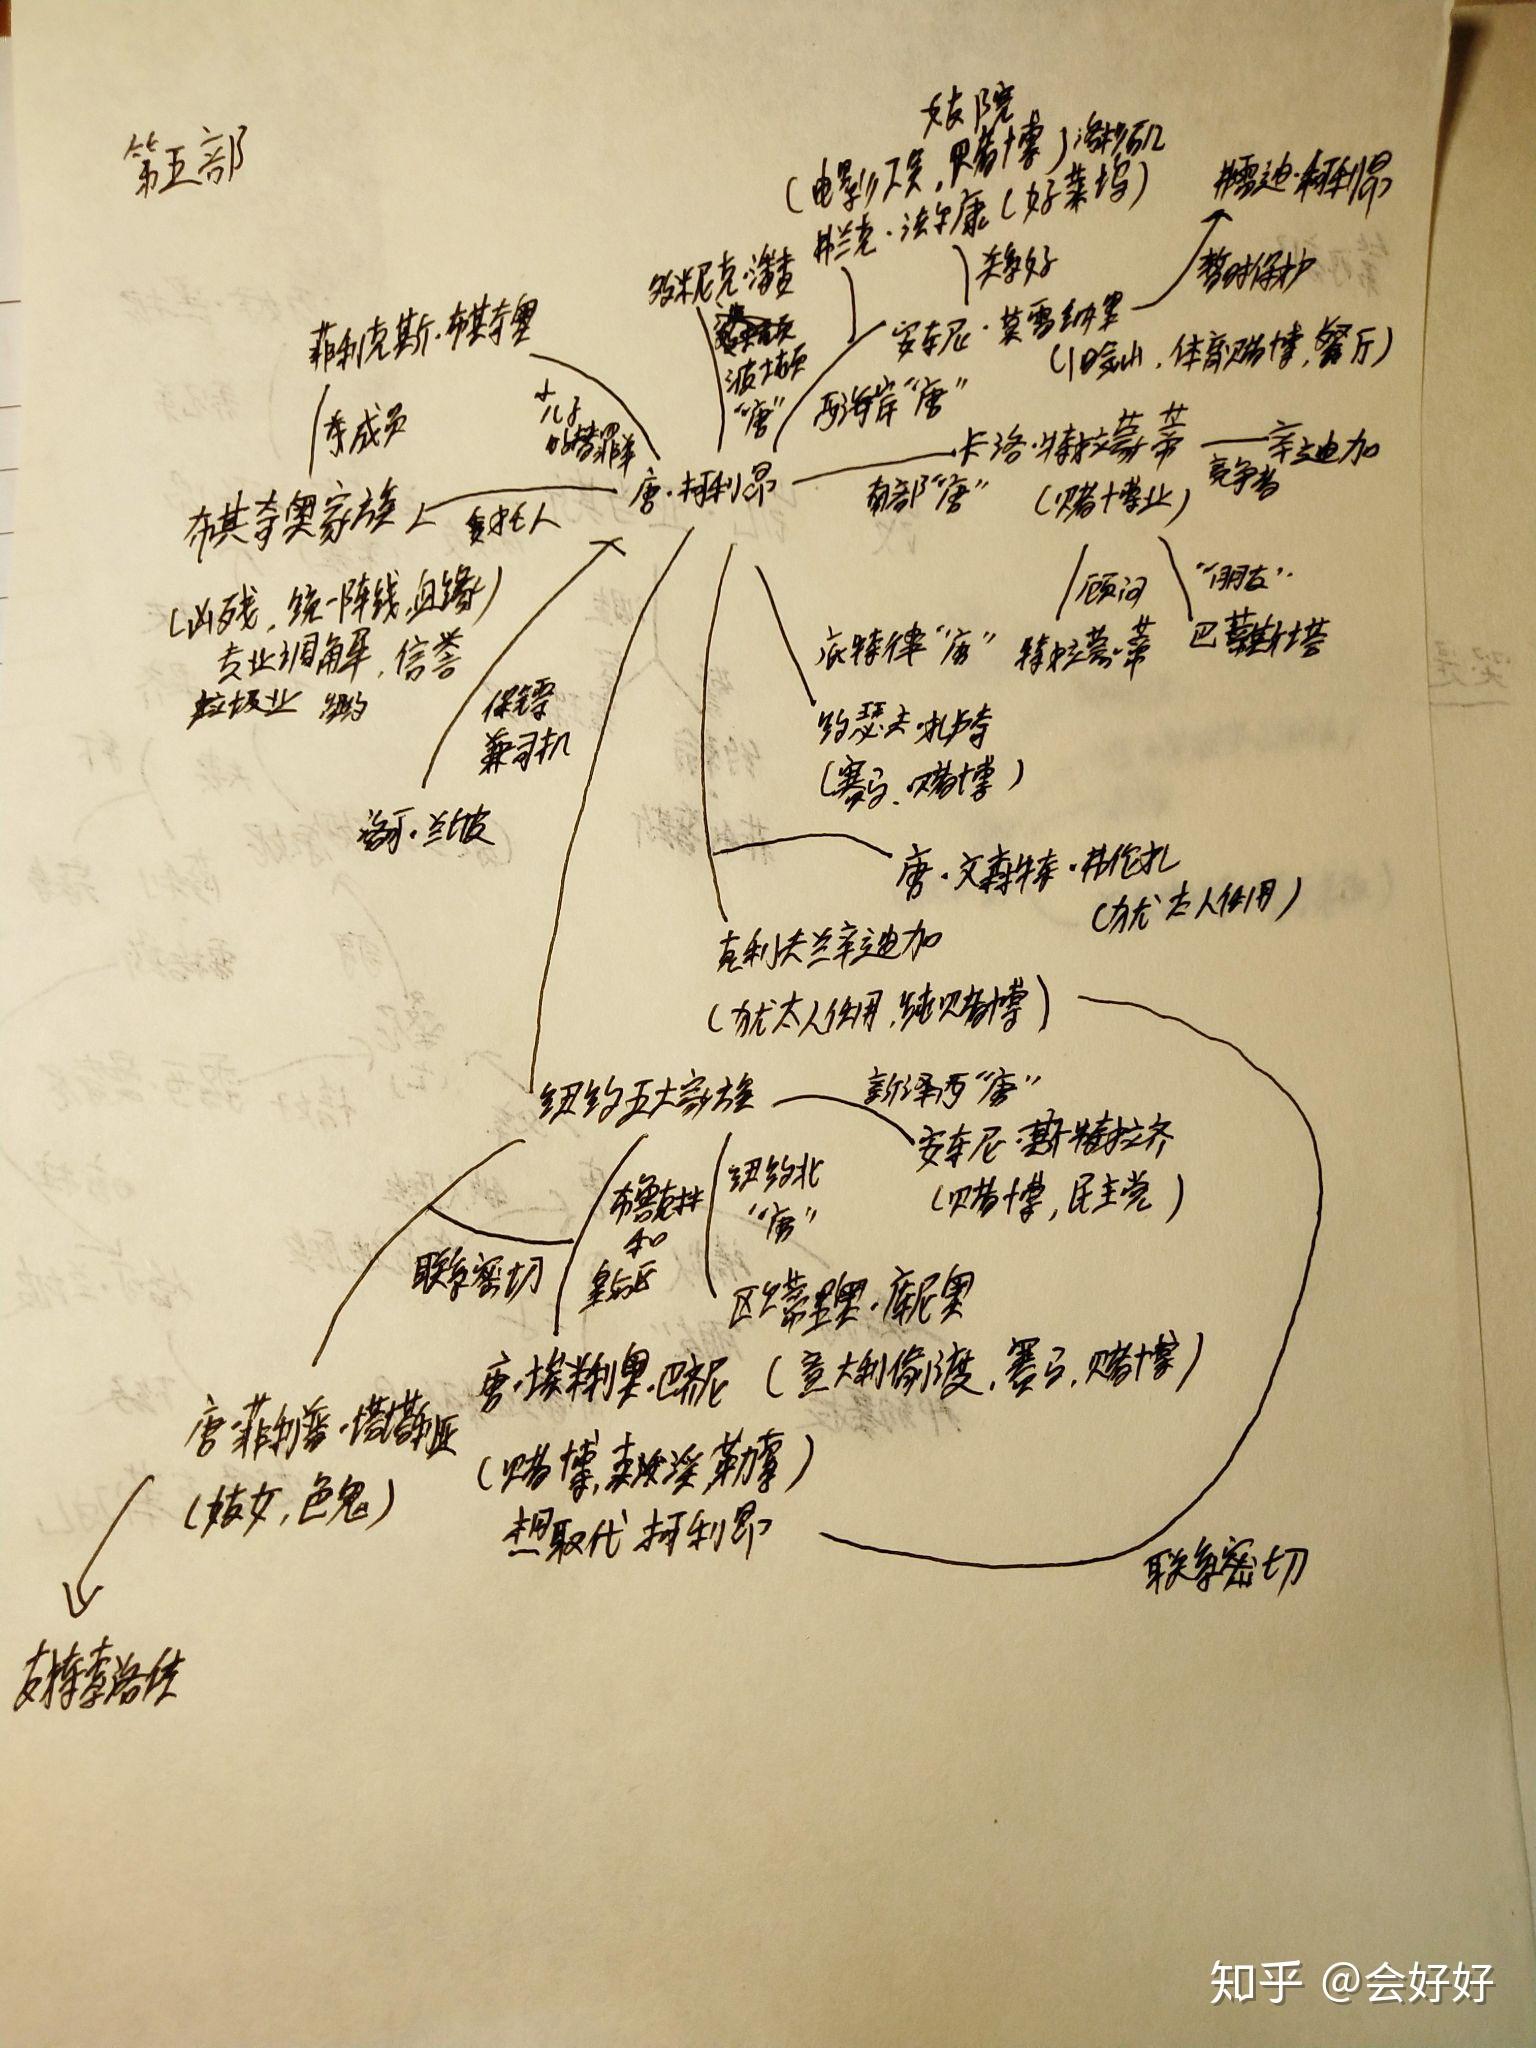 第五部
妓院
(电影工会,赌博)洛杉矶
弗兰克·法尔康(好莱坞)
弗雷迪·柯利昂
关系好
暂时保护
多米尼克·潘查
波士顿
"唐"
安东尼·莫雷纳罗
(旧金山,体育赌博,餐厅)
西海岸"唐"
菲利克斯·布其奇奥
亲成员
儿子
替罪羊
唐·柯利昂
卡洛·特拉蒙蒂
辛迪加
竞争者
南部"唐"
(赌博业)
布其奇奥家族
委托人
(凶残,统一阵线,血缘)
专业调解,信誉
垃圾业 纽约
顾问
特拉蒙蒂
"朋友"
巴蒂斯塔
底特律"唐"
约瑟夫·扎卢奇
(赛马,赌博)
保镖
兼司机
洛可·兰坡
唐·文森特·弗伦扎
(为犹太人任用)
克利夫兰辛迪加
(为犹太人任用,纯赌博)
纽约五大家族
新泽西"唐"
安东尼·斯特拉齐
(赌博,民主党)
布鲁克林
和
皇后区
纽约北
"唐"
联系密切
区蒙里奥·库尼奥
(意大利偷渡,赛马,赌博)
唐·埃米利奥·巴齐尼
唐·菲利普·塔塔利亚
(赌博,卖淫,勒索)
(妓女,色鬼)
想取代柯利昂
联系密切
支持索洛佐
知乎 @会好好